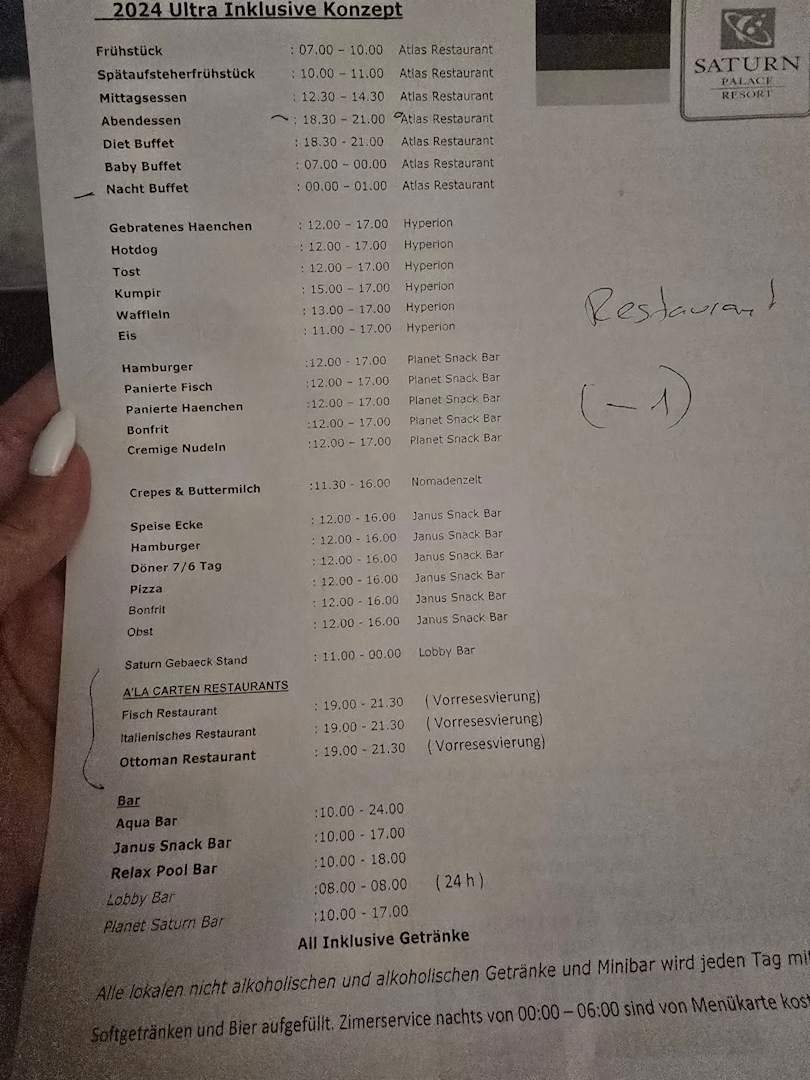 2024 Ultra Inklusive Konzept
SATURN
PALACE
RESORT
Frühstück : 07.00 – 10.00 Atlas Restaurant
Spätaufsteherfrühstück : 10.00 – 11.00 Atlas Restaurant
Mittagsessen : 12.30 – 14.30 Atlas Restaurant
Abendessen : 18.30 – 21.00 Atlas Restaurant
Diet Buffet : 18.30 - 21.00 Atlas Restaurant
Baby Buffet : 07.00 – 00.00 Atlas Restaurant
Nacht Buffet : 00.00 – 01.00 Atlas Restaurant
Gebratenes Haenchen : 12.00 – 17.00 Hyperion
Hotdog : 12.00 - 17.00 Hyperion
Tost : 12.00 – 17.00 Hyperion
Kumpir : 15.00 – 17.00 Hyperion
Waffleln : 13.00 – 17.00 Hyperion
Eis : 11.00 – 17.00 Hyperion
Restaurant
(– 1)
Hamburger :12.00 - 17.00 Planet Snack Bar
Panierte Fisch :12.00 – 17.00 Planet Snack Bar
Panierte Haenchen :12.00 – 17.00 Planet Snack Bar
Bonfrit :12.00 – 17.00 Planet Snack Bar
Cremige Nudeln :12.00 – 17.00 Planet Snack Bar
Crepes & Buttermilch :11.30 - 16.00 Nomadenzelt
Speise Ecke : 12.00 - 16.00 Janus Snack Bar
Hamburger : 12.00 - 16.00 Janus Snack Bar
Döner 7/6 Tag : 12.00 - 16.00 Janus Snack Bar
Pizza : 12.00 - 16.00 Janus Snack Bar
Bonfrit : 12.00 - 16.00 Janus Snack Bar
Obst : 12.00 - 16.00 Janus Snack Bar
Saturn Gebaeck Stand : 11.00 - 00.00 Lobby Bar
A'LA CARTEN RESTAURANTS
Fisch Restaurant : 19.00 - 21.30 ( Vorresesvierung)
Italienisches Restaurant : 19.00 - 21.30 ( Vorresesvierung)
Ottoman Restaurant : 19.00 - 21.30 ( Vorresesvierung)
Bar
Aqua Bar :10.00 - 24.00
Janus Snack Bar :10.00 - 17.00
Relax Pool Bar :10.00 - 18.00
Lobby Bar :08.00 - 08.00 ( 24 h )
Planet Saturn Bar :10.00 - 17.00
All Inklusive Getränke
Alle lokalen nicht alkoholischen und alkoholischen Getränke und Minibar wird jeden Tag mi
Softgetränken und Bier aufgefüllt. Zimerservice nachts von 00:00 – 06:00 sind von Menükarte kos